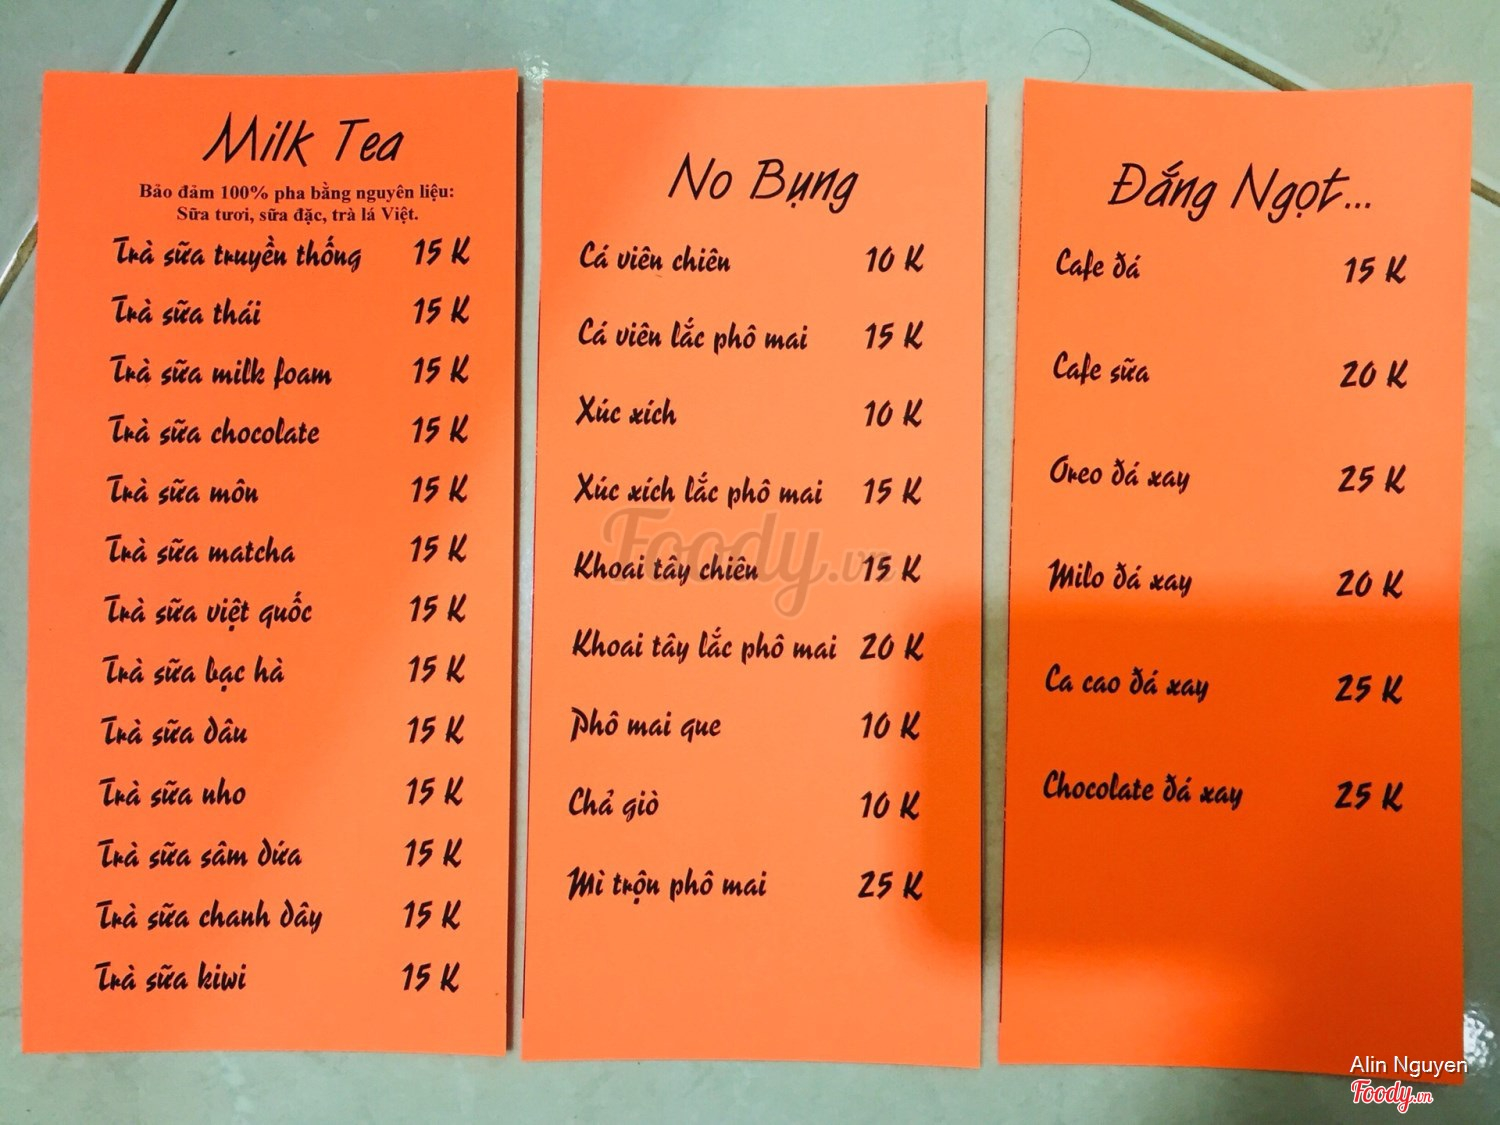 Milk Tea
Bảo đảm 100% pha bằng nguyên liệu:
Sữa tươi, sữa đặc, trà lá Việt.
Trà sữa truyền thống 15 K
Trà sữa thái 15 K
Trà sữa milk foam 15 K
Trà sữa chocolate 15 K
Trà sữa môn 15 K
Trà sữa matcha 15 K
Trà sữa việt quốc 15 K
Trà sữa bạc hà 15 K
Trà sữa dâu 15 K
Trà sữa nho 15 K
Trà sữa sâm dứa 15 K
Trà sữa chanh dây 15 K
Trà sữa kiwi 15 K
No Bụng
Cá viên chiên 10 K
Cá viên lắc phô mai 15 K
Xúc xích 10 K
Xúc xích lắc phô mai 15 K
Khoai tây chiên 15 K
Khoai tây lắc phô mai 20 K
Phô mai que 10 K
Chả giò 10 K
Mì trộn phô mai 25 K
Đắng Ngọt...
Cafe đá 15 K
Cafe sữa 20 K
Oreo đá xay 25 K
Milo đá xay 20 K
Ca cao đá xay 25 K
Chocolate đá xay 25 K
Foody.vn
Alin Nguyen
Foody.vn